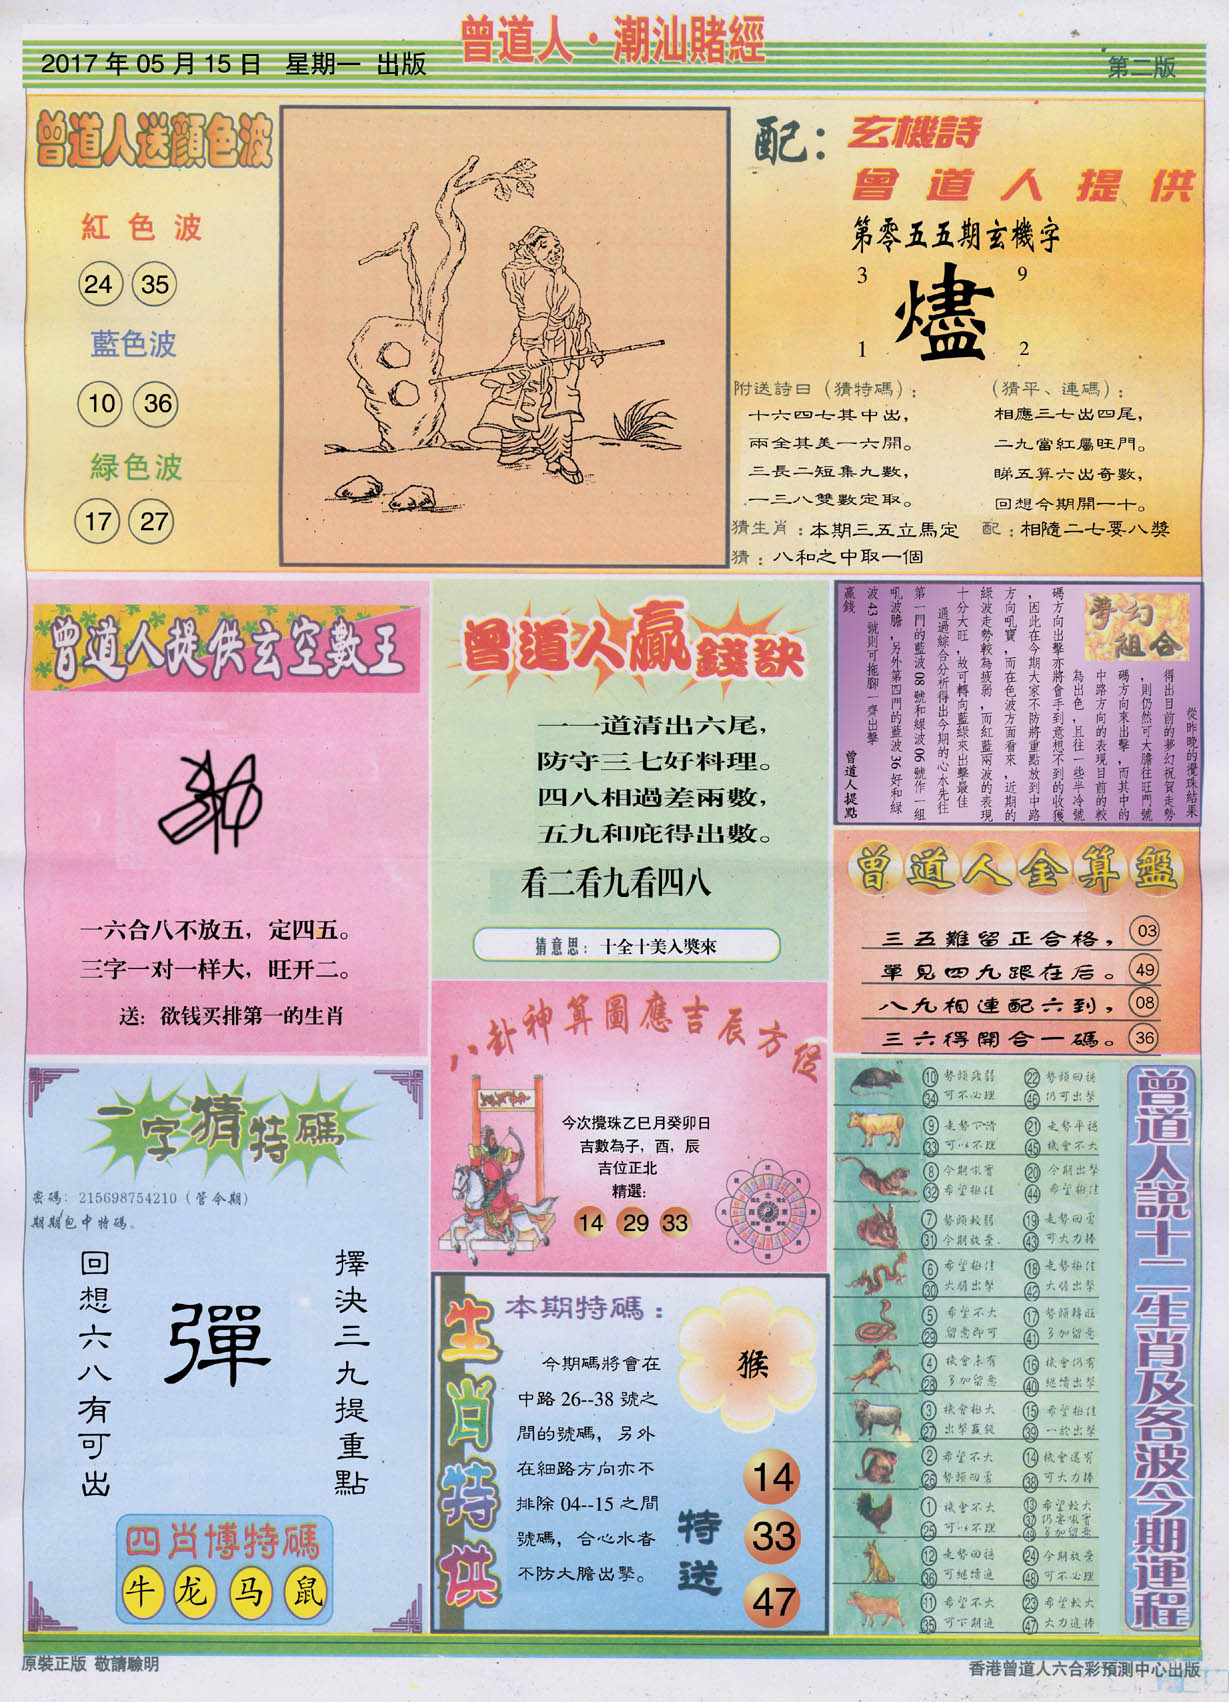 曾道人·潮汕賭經
2017年05月15日 星期一 出版
第二版
曾道人送顏色波
紅色波
24 35
藍色波
10 36
緑色波
17 27
配：
玄機詩
曾道人提供
第零五五期玄機字
3 9
燼
1 2
附送詩曰（猜特碼）：
十六四七其中出，
兩全其美一六開。
三長二短集九數，
一三八雙數定取。
（猜平、連碼）：
相應三七出四尾，
二九當紅屬旺門。
睇五算六出奇數，
回想今期開一十。
猜生肖：本期三五立馬定
配：相隨二七要八獎
猜：八和之中取一個
曾道人提供玄空數王
一六合八不放五，定四五。
三字一对一样大，旺开二。
送：欲钱买排第一的生肖
曾道人贏錢訣
一一道清出六尾，
防守三七好料理。
四八相過差兩數，
五九和庇得出數。
看二看九看四八
猜意思：十全十美入獎來
夢幻組合
從昨晚的攪珠結果
得出目前的夢幻祝賀走勢
，則仍然可大膽往旺門號
碼方向來出擊，而其中的
中路方向的表現目前的較
為出色，且往一些半冷號
碼方向出擊亦將會手到意想不到的收獲
，因此在今期大家不防將重點放到中路
方向吼寶，而在色波方面看來，近期的
綠波走勢較為疲弱，而紅藍兩波的表現
十分大旺，故可轉向藍綠來出擊最佳
通過綜合分析得出今期的心水先往
第一門的藍波08號和綠波06號作一組
吼波膽，另外第四門的藍波36好和綠
波43號則可拖腳一齊出擊
贏錢
曾道人提點
曾道人金算盤
三五難留正合格， 03
單見四九跟在后。 49
八九相連配六到， 08
三六得開合一碼。 36
八卦神算圖應吉辰方位
今次攪珠乙巳月癸卯日
吉數為子，酉，辰
吉位正北
精選：
14 29 33
一字猜特碼
密碼：215698754210（管今期）
期期包中特碼。
擇決三九提重點
彈
回想六八有可出
四肖博特碼
牛 龙 马 鼠
生肖特供
本期特碼：
今期碼將會在
中路26--38號之
間的號碼，另外
在細路方向亦不
排除04--15之間
號碼，合心水者
不防大膽出擊。
猴
特送
14
33
47
曾道人說十二生肖及各波今期運程
10 勢頭疲弱 22 勢頭回穩
34 可不必理 46 仍可出擊
9 走勢下滑 21 走勢平穩
33 可以不理 45 機會不大
8 今期吼寶 20 今期出擊
32 希望極佳 44 希望極佳
7 勢頭較弱 19 走勢回勇
31 今期放棄 43 可大力捧
6 希望極佳 18 走勢極佳
30 大膽出擊 42 大膽出擊
5 希望不大 17 勢頭轉旺
29 留意即可 41 多加留意
4 機會未有 16 機會仍有
28 多加留意 40 繼續出擊
3 機會極大 15 希望極佳
27 出擊贏錢 39 一於出擊
2 希望不大 14 機會還有
26 勢頭回勇 38 可大力捧
1 機會不大 13 希望較大
25 可以不理 37 仍要吼寶
49 多加留意
12 走勢回穩 24 今期放棄
36 可繼續追 48 可不必理
11 希望不大 23 希望較大
35 可下期追 47 大力追捧
原裝正版 敬請驗明
香港曾道人六合彩預測中心出版